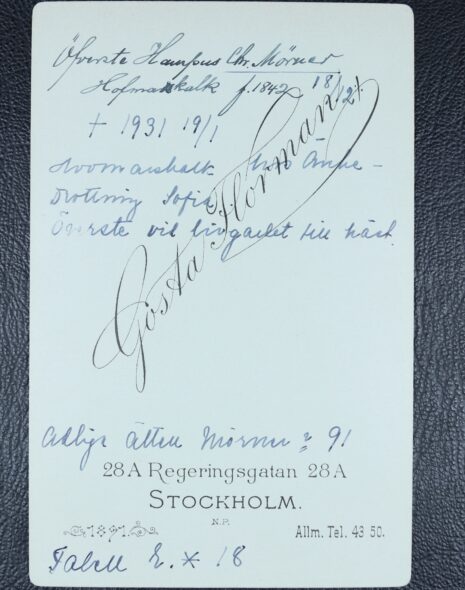 Öfverste Hampus Chr. Mörner
Hofmarskalk f. 1842 18/12
† 1931 19/1
Hovmarskalk hos Änke-
Drottning Sofia
Överste vid livgardet till häst.
Gösta Florman
Adliga ätten Mörner 91
28A Regeringsgatan 28A
STOCKHOLM.
N.P.
1891. Allm. Tel. 43 50.
Tabell 18